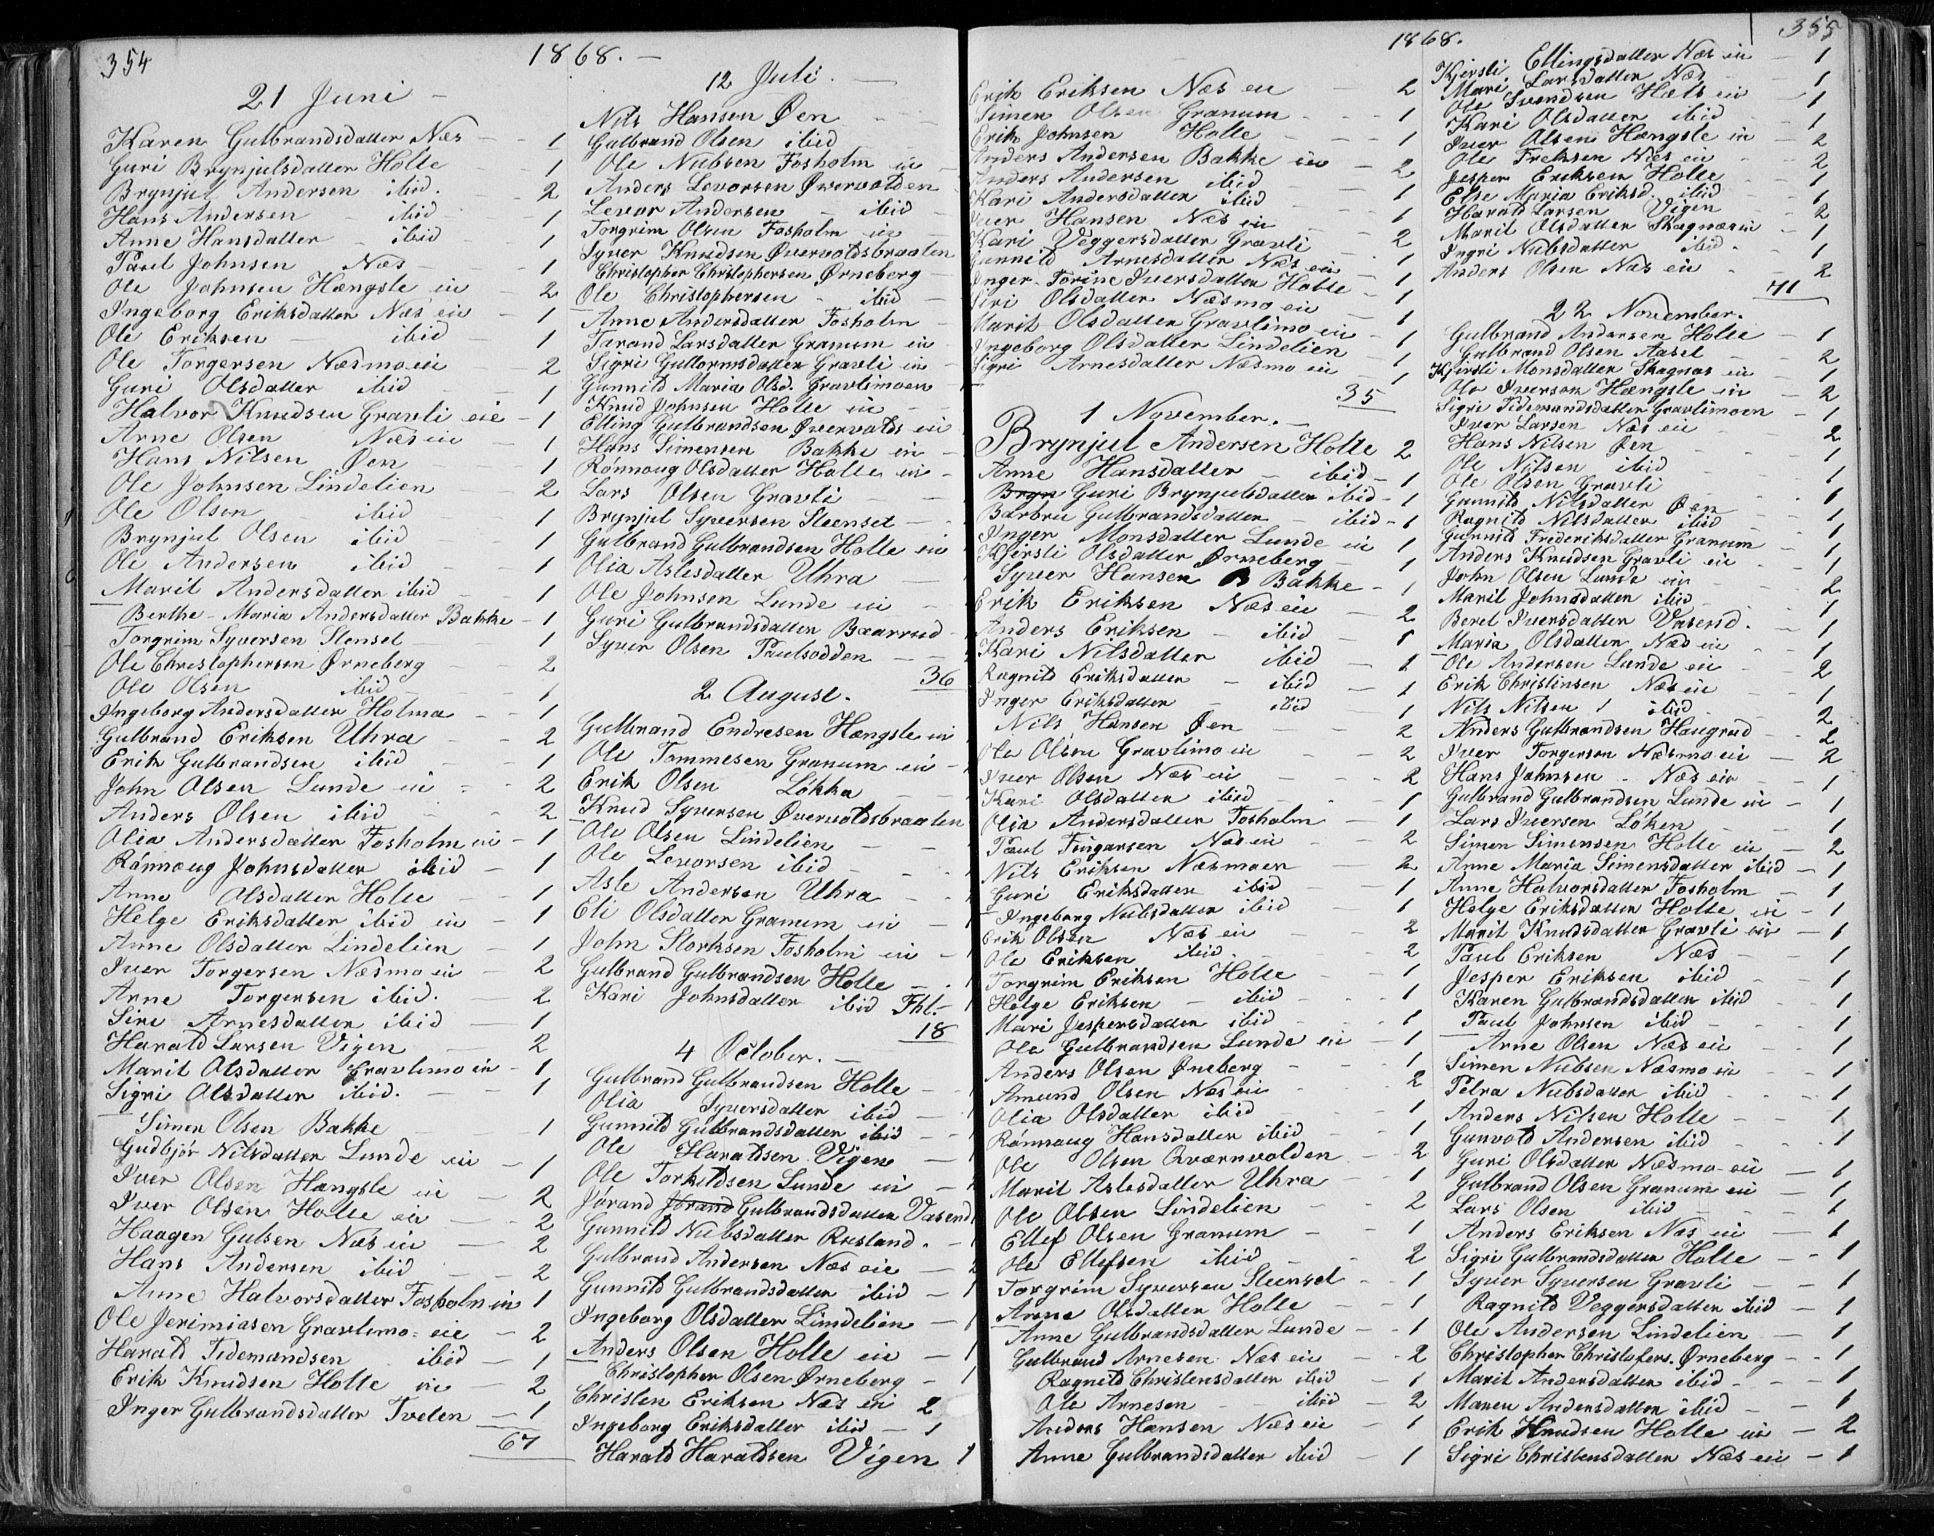 354
1868. –
21 Juni –
Karen Gulbrandsdatter Næs – 1
Guri Brynjulsdatter Holte 1
Brynjul Andersen ibid. 2
Hans Andersen – ibid 1
Anne Hansdatter – ibid 1
Paul Johnsen Næs – 1
Ole Johnsen Hængsle eie – 2
Ingeborg Eriksdatter Næs eie – 1
Ole Eriksen – ibid 1
Ole Torgersen Næsmo eie – 2
Guri Olsdatter ibid – 1
Halvor Knudsen Gravli eie – 1
Arne Olsen Næs eie – 1
Hans Nilsen Øen – 1
Ole Johnsen Lindelien – 2
Ole Olsen ibid – 1
Brynjul Olsen ibid – 1
Ole Andersen ibid – 1
Marit Andersdatter ibid – 1
Berthe-Maria Andersdatter Bakke – 1
Torgrim Syversen Stenset 1
Ole Christophersen Ørneberg – 2
Ole Olsen ibid – 1
Ingeborg Andersdatter Holma – 1
Gulbrand Eriksen Uhra – 2
Erik Gulbrandsen ibid – 1
John Olsen Lunde eie – 2
Anders Olsen ibid – 2
Olia Andersdatter Fosholm eie – 1
Rønnoug Johnsdatter ibid – 1
Anne Olsdatter Holte – 1
Helge Eriksdatter ibid eie – 1
Anne Olsdatter Lindelien 1
Iver Torgersen Næsmo eie – 2
Arne Torgersen ibid. 2
Siri Arnesdatter ibid – 1
Harald Larsen Vigen – 2
Marit Olsdatter Gravlimo eie – 1
Sigri Olsdatter ibid. – 1
Simen Olsen Bakke – 1
Gudbjør Nilsdatter Lunde eie – 1
Iver Olsen Hængsle eie – 2
Iver Olsen Holte eie – 2
Haagen Gulsen Næs eie – 2
Hans Andersen ibid – 2
Anne Halvorsdatter Fosholm eie 1
Ole Jerimiasen Gravlimo-eie – 2
Harald Tidemandsen ibid – 1
Erik Knudsen Holte eie – 2
Inger Gulbrandsdatter Tvelen – 1
67
12 Juli. –
Nils Hansen Øen
Gulbrand Olsen ibid
Ole Nubsen Fosholm eie
Anders Levorsen Øvervolden
Levor Andersen – ibid
Torgrim Olsen Fosholm eie
Syver Knudsen Øvervoldsbraaten
Christopher Christophersen Ørneberg –
Ole Christophersen – ibid
Anne Andersdatter Fosholm –
Tarand Larsdatter Granum eie
Sigri Guttormsdatter Gravli eie –
Gunnild Maria Olsd. Gravlimoen
Knud Johnsen Holte eie –
Elling Gulbrandsen Øvervolds eie
Hans Simensen Bakke eie –
Rønnoug Olsdatter Holte eie –
Lars Olsen Gravli –
Brynjul Syversen Steenset –
Gulbrand Gulbrandsen Holte eie
Olia Aslesdatter Uhra –
Ole Johnsen Lunde eie –
Guri Gulbrandsdatter Baarrud –
Syver Olsen Paulsødden –
36
2 August.
Gulbrand Endresen Hængsle eie
Ole Tommesen Granum eie –
Erik Olsen Løkka –
Knud Syversen Øvervoldsbraaten
Ole Olsen Lindelien –
Ole Levorsen ibid –
Asle Andersen Uhra –
Eli Olsdatter Granum eie –
John Storksen Fosholm eie – 1
Gulbrand Gulbrandsen Holte – 1
Kari Johnsdatter ibid Fhl. – 1
18
4 October. –
Gulbrand Gulbrandsen Holte –
Olia Syversdatter ibid – 1
Gunnild Gulbrandsdatter ibid – 1
Ole Haraldsen Vigen – 1
Ole Torkildsen Lunde eie –
Jørand Jørand Gulbrandsdatter Vasend
Gunnild Nubsdatter Rusland. – 1
Gulbrand Andersen Næs eie – 2
Gunnild Gulbrandsdatter ibid – 1
Ingeborg Olsdatter Lindelien – 1
Anders Olsen Holte eie – 1
Christopher Olsen Ørneberg – 1
Christen Eriksen Næs eie 2
Ingeborg Eriksdatter ibid – 1
Harald Haraldsen Vigen 1
1868.
355
Erik Eriksen Næs eie – 2
Simen Olsen Granum – 1
Erik Johnsen Holte – 1
Anders Andersen Bakke eie – 2
Anders Andersen ibid
Kari Andersdatter ibid – 1
Iver Hansen Næs eie – 1
Kari Veggersdatter Gravli – 2
Gunnild Arnesdatter Næs eie – 1
Inger-Torine Iversdatter Holte – 1
Siri Olsdatter Næsmo eie – 1
Marit Olsdatter Gravlimo eie – 1
Ingeborg Olsdatter Lindelien 1
Sigri Arnesdatter Næsmo eie – 1
35
1 November. –
Brynjul Andersen Holte 2
Anne Hansdatter – ibid – 1
Bryn Guri Brynjulsdatter ibid – 1
Barbru Gulbrandsdatter – ibid – 1
Inger Monsdatter Lunde eie 1
Kjersti Olsdatter Ørneberg – 1
Syver Hansen B Bakke – 1
Erik Eriksen Næs eie – 2
Anders Eriksen – ibid – 1
Kari Nilsdatter ibid – 1
Ragnild Eriksdatter – ibid – 1
Inger Eriksdatter – ibid – 1
Nils Hansen Øen – 2
Ole Olsen Gravlimo eie – 2
Iver Olsen Næs eie – 2
Kari Olsdatter ibid – 1
Olia Andersdatter Fosholm – 1
Paul Fingarsen Næs eie – 2
Nils Eriksen Næsmoen – 2
Guri Eriksdatter ibid – 1
Ingeborg Nubsdatter ibid – 1
Erik Olsen Næs eie – 2
Ole Eriksen ibid – 2
Torgrim Eriksen Holte – 1
Helge Eriksen – ibid – 1
Mari Jespersdatter ibid – 1
Ole Gulbrandsen Lunde eie – 1
Anders Olsen Øneberg – 2
Amund Olsen Næs eie
Olia Olsdatter ibid – 1
Rønnaug Hansdatter ibid – 1
Ole Olsen Qværnvolden – 2
Marit Aslesdatter Uhra – 1
Ole Olsen Lindelien – 2
Ellef Olsen Granum – 1
Ole Ellefsen ibid – 2
Torgrim Syversen Steenset – 1
Anne Olsdatter Holte – 1
Anne Gulbrandsdatter Lunde – 1
Gulbrand Arnesen Næs eie – 2
Ragnild Christensdatter ibid – 1
Ole Arnesen – ibid – 2
Anders Hansen Næs eie – 1
Anne Gulbrandsdatter ibid 1
Kjersti Ellingsdatter Næs eie – 1
Mari Larsdatter Næs – 1
Ole Svendsen Hals eie – 1
Kari Olsdatter ibid – 1
Iver Olsen Hængsle eie – 2
Ole Eriksen Næs eie – 2
Jesper Eriksen Holte – 1
Else Maria Eriksd. ibid – 1
Harald Larsen Vigen – 2
Marit Olsdatter Skagnæs eie – 1
Ingri Nubsdatter ibid. – 1
Anders Olsen Næs eie – 2
71
22 November.
Gulbrand Andersen Holte – 1
Gulbrand Olsen Aasel – 2
Kjersti Monsdatter Skagnæs eie – 1
Ole Iversen Hængsle eie – 2
Sigri Tidemandsdatter Gravlimoen – 1
Iver Larsen Næs eie – 2
Hans Nilsen Øen – 1
Ole Nilsen ibid 1
Ole Olsen Gravli – 1
Gunnild Nilsdatter Øen – 1
Ragnild Nilsdatter ibid – 1
Gunnild Frederiksdatter Granum – 1
Anders Knudsen Gravli eie – 1
John Olsen Lunde eie – 2
Marit Johnsdatter ibid – 1
Berel Iversdatter Vasend. – 1
Maria Olsdatter Næs eie – 1
Ole Andersen Lunde eie – 2
Erik Christensen Næs eie – 1
Nils Nilsen ibid – 2
Anders Gulbrandsen Haugrud – 2
Iver Torgersen Næsmo eie – 2
Hans Johnsen – Næs eie – 1
Gulbrand Gulbrandsen Lunde eie – 1
Lars Iversen Løken – 1
Simen Simensen Holte eie – 2
Anne Maria Simensdatter ibid – 1
Anne Halvorsdatter Fosholm – 1
Helge Eriksdatter Holte eie – 1
Marit Knudsdatter Gravli eie – 1
Paul Eriksen Næs – 1
Jesper Eriksen ibid – 1
Karen Gulbrandsdatter ibid – 1
Paul Johnsen ibid – 1
Arne Olsen Næs eie – 1
Simen Nubsen Næsmo eie – 1
Petra Nubsdatter ibid – 1
Anders Nilsen Holte – 1
Gunvold Andersen ibid – 1
Guri Olsdatter Næsmo-eie – 1
Gulbrand Olsen Granum eie – 1
Lars Olsen ibid – 1
Anders Eriksen Næs eie – 1
Sigri Gulbrandsdatter Holte – 1
Syver Syversen Gravli – 1
Ragnild Veggersdatter ibid – 1
Ole Andersen Lindelien – 1
Christopher Christofers. Ørneberg – 1
Marit Andersdatter ibid – 1
Maren Andersdatter ibid – 1
Erik Knudsen Holte eie – 2
Sigri Christensdatter Næs eie – 1